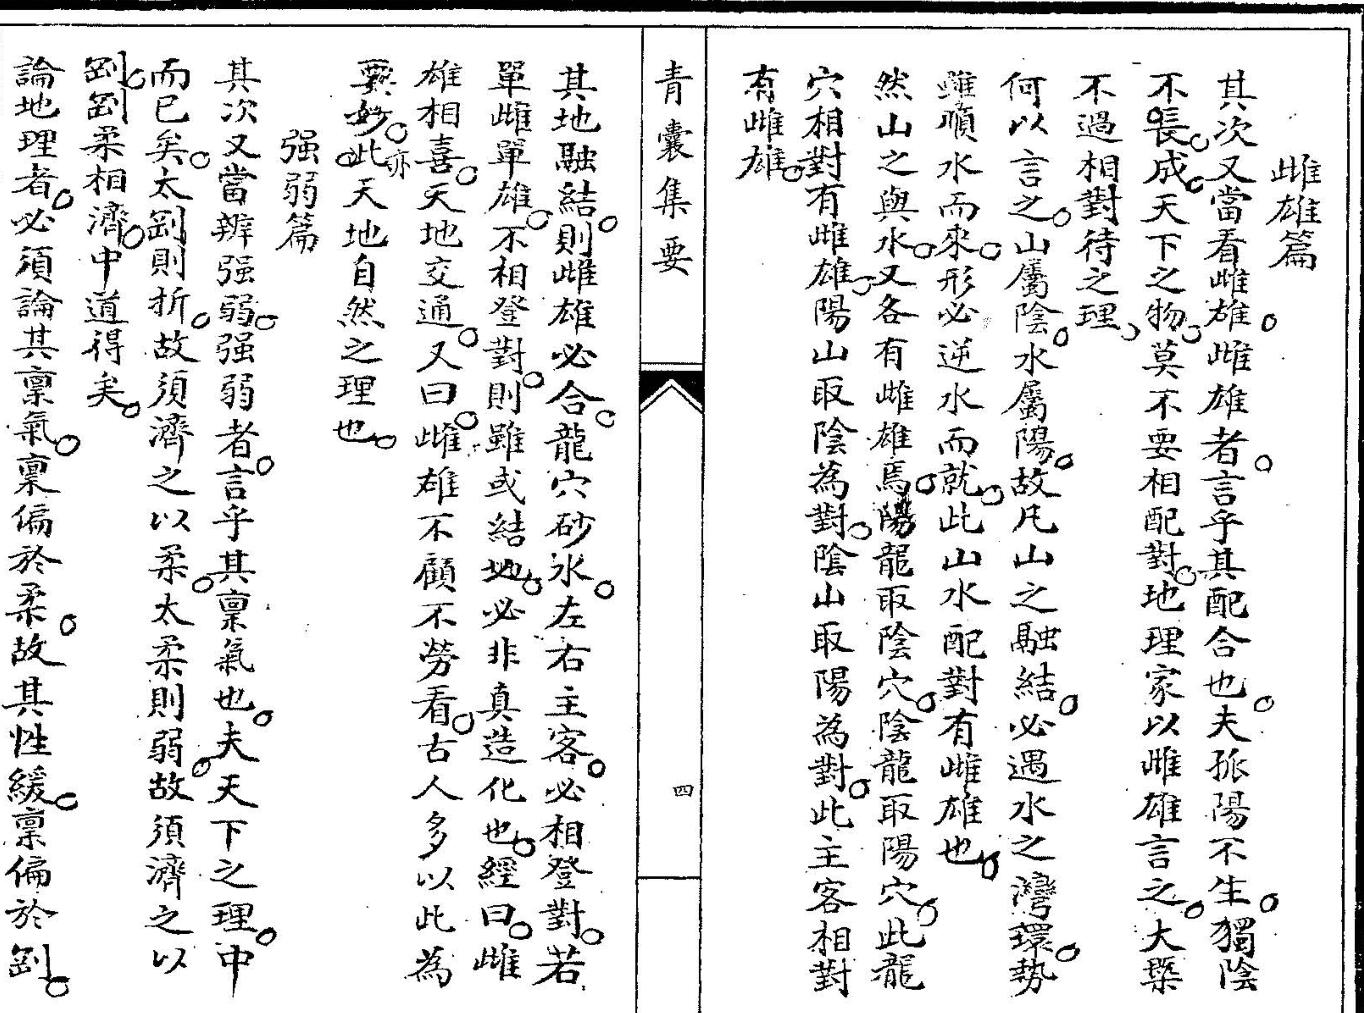 雌雄篇
其次又當看雌雄。雌雄者。言乎其配合也。夫孤陽不生。獨陰
不長。成。天下之物。莫不要相配對。地理家以雌雄言之。大槩
不過相對待之理。
何以言之。山屬陰。水屬陽。故凡山之融結。必遇水之灣環。勢
雖順水而來。形必逆水而就。此山水配對有雌雄也。
然山之與水。又各有雌雄焉。陽龍取陰穴。陰龍取陽穴。此龍
穴相對有雌雄。陽山取陰為對。陰山取陽為對。此主客相對
有雌雄。
青囊集要
四
其地融結。則雌雄必合。龍穴砂水。左右主客。必相登對。若
單雌單雄。不相登對。則雖或結地。必非真造化也。經曰。雌
雄相喜。天地交通。又曰。雌雄不顧不勞看。古人多以此為
要妙。此亦天地自然之理也。
强弱篇
其次又當辨强弱。强弱者。言乎其稟氣也。夫天下之理。中
而已矣。太剛則折。故須濟之以柔。太柔則弱。故須濟之以
剛。剛柔相濟。中道得矣。
論地理者。必須論其稟氣。稟偏於柔。故其性緩。稟偏於剛。